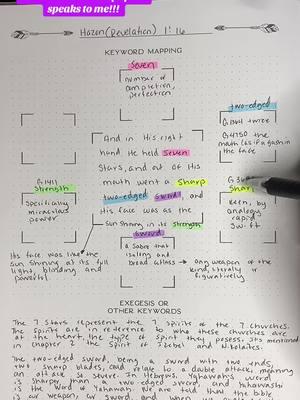 speaks to me!!!
Hazon(Revelation) 1:16
KEYWORD MAPPING
Seven
number of
completion,
perfection
two-edged
G1366 twice
G4750 the
mouth (as if a gash in
the face
And in His right
hand He held Seven
Stars, and out of His
mouth went a Sharp
two-edged Sword, and
His face was as the
Sun Shining in its Strength
G1411
Strength
Specifically
miraculous
power
Sharp
keen, by
analogy rapid
Swift
His face was like the
sun shining at its full
light, blinding and
powerful.
Sword
a Sabre that is
long and
broad cutlass
any weapon of the
kind, literally or
figuratively
EXEGESIS OR
OTHER KEYWORDS
The 7 Stars represent the 7 Spirits of the 7 churches.
The Spirits are in reference to who these churches are
at the heart, the type of Spirit they possess. Its mentioned
in chapter 2 the Spirit of Jezebel and Nicolaites.
The two-edged sword, being a sword with two ends,
two sharp blades, and relate to a double attack, meaning
an attack so severe. In Hebrews, Yahawah's word
is sharper than a two-edged sword, and Yahawashi
is the Word of Yahawah. We are told that the bible
is our weapon, our sword, and when we